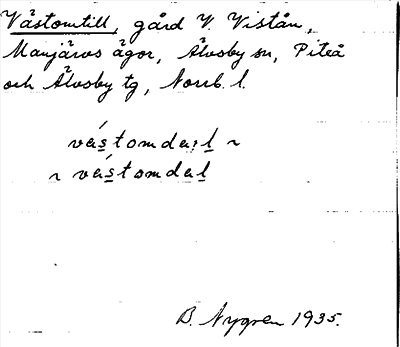 Västomtill, gård V. Vistån,
Manjärvs ägor, Älvsby sn, Piteå
och Älvsby tg, Norrb. l.
vástomda:l ~
~ vástomdal
B. Nygren 1935.